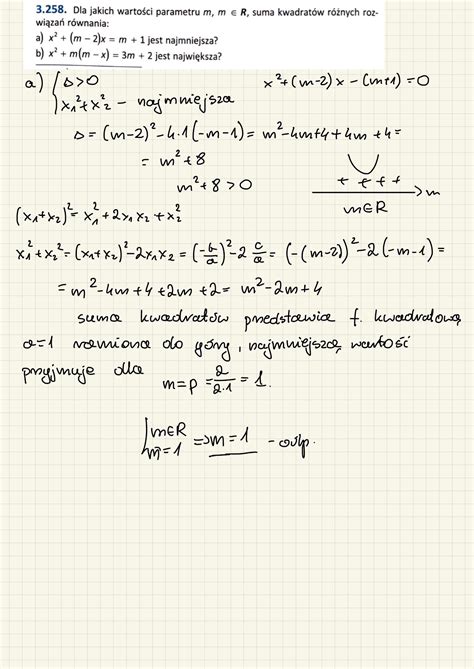 3.258. Dla jakich wartości parametru m, m ∈ R, suma kwadratów różnych roz-
wiązań równania:
a) x² + (m – 2)x = m + 1 jest najmniejsza?
b) x² + m(m – x) = 3m + 2 jest największa?
a) { Δ>0    x²+(m-2)x-(m+1)=0
x₁²+x₂² - najmniejsza
Δ = (m-2)²-4·1(-m-1) = m²-4m+4+4m+4=
= m²+8
m²+8>0
+ + + + m
m∈R
(x₁+x₂)²= x₁²+2x₁x₂+x₂²
x₁²+x₂²=(x₁+x₂)²-2x₁x₂ = (-b/a)²-2 c/a = (-(m-2))²-2(-m-1)=
= m²-4m+4+2m+2= m²-2m+4
suma kwadratów przedstawia f. kwadratową
a=1 ramiona do góry, najmniejszą wartość
przyjmuje dla
m=p = 2/2·1 = 1.
{ m∈R
m=1 ⇒ m=1 - odp.